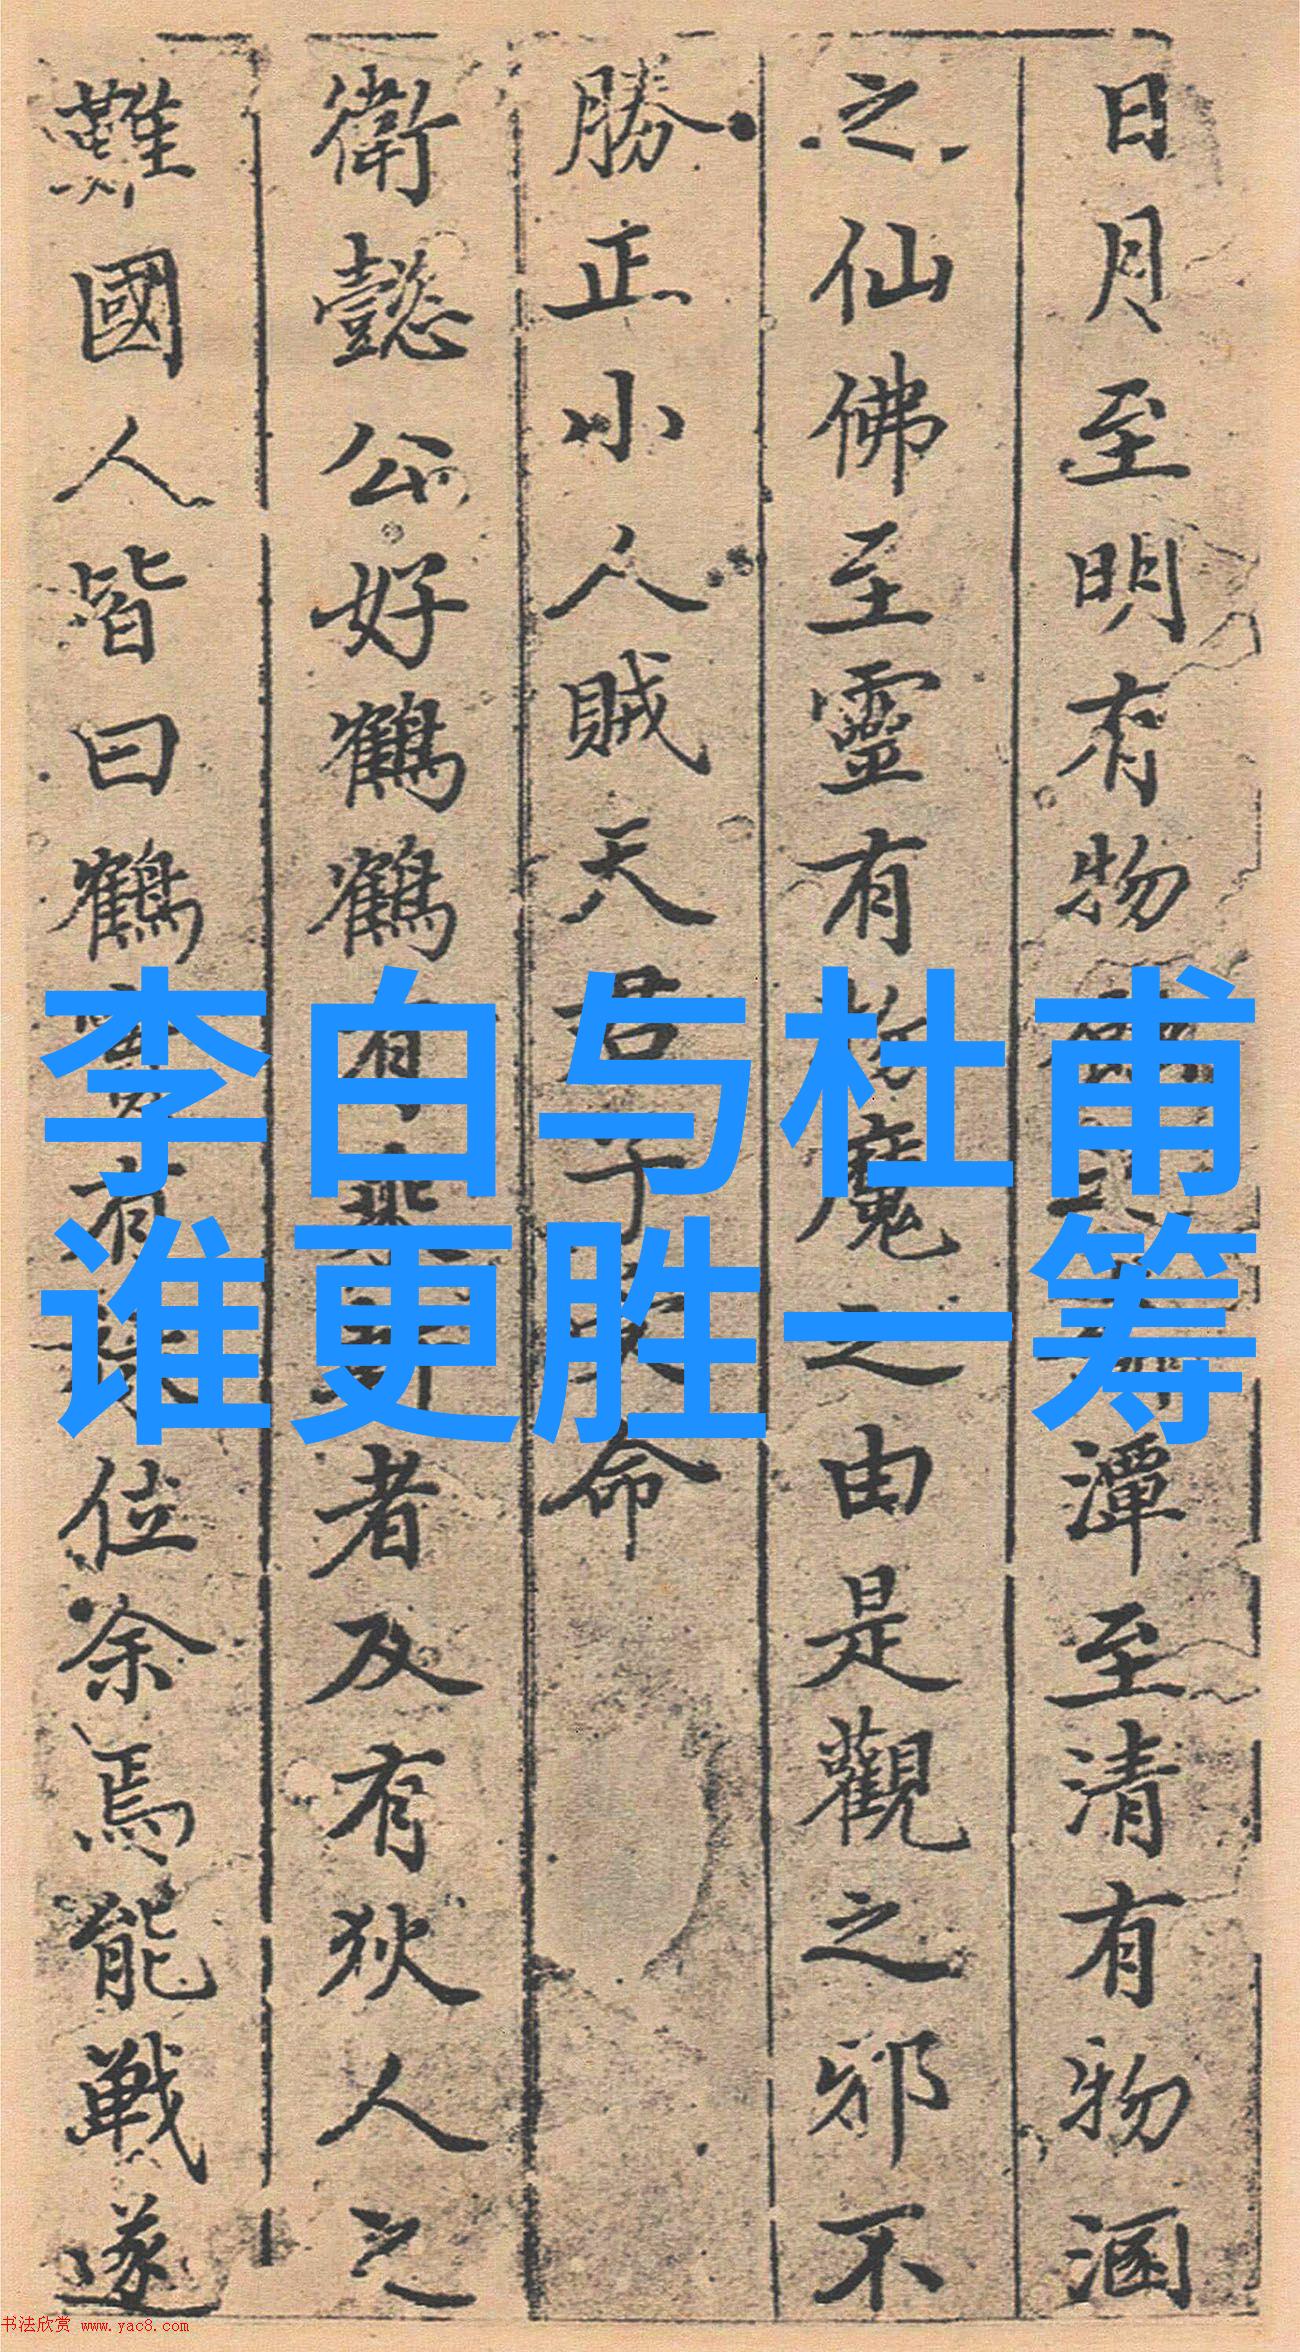 日月至明有物蝕之潭至清有物涵
之仙佛至靈有妖魔之由是觀之邪不
勝正小人賊天君子天命
衛懿公好鶴鶴有乘軒者及有狄人之
難國人皆曰鶴實有祿位余焉能戰遂
李白与杜甫
谁更胜一筹
书法欣赏 www.yac8.com